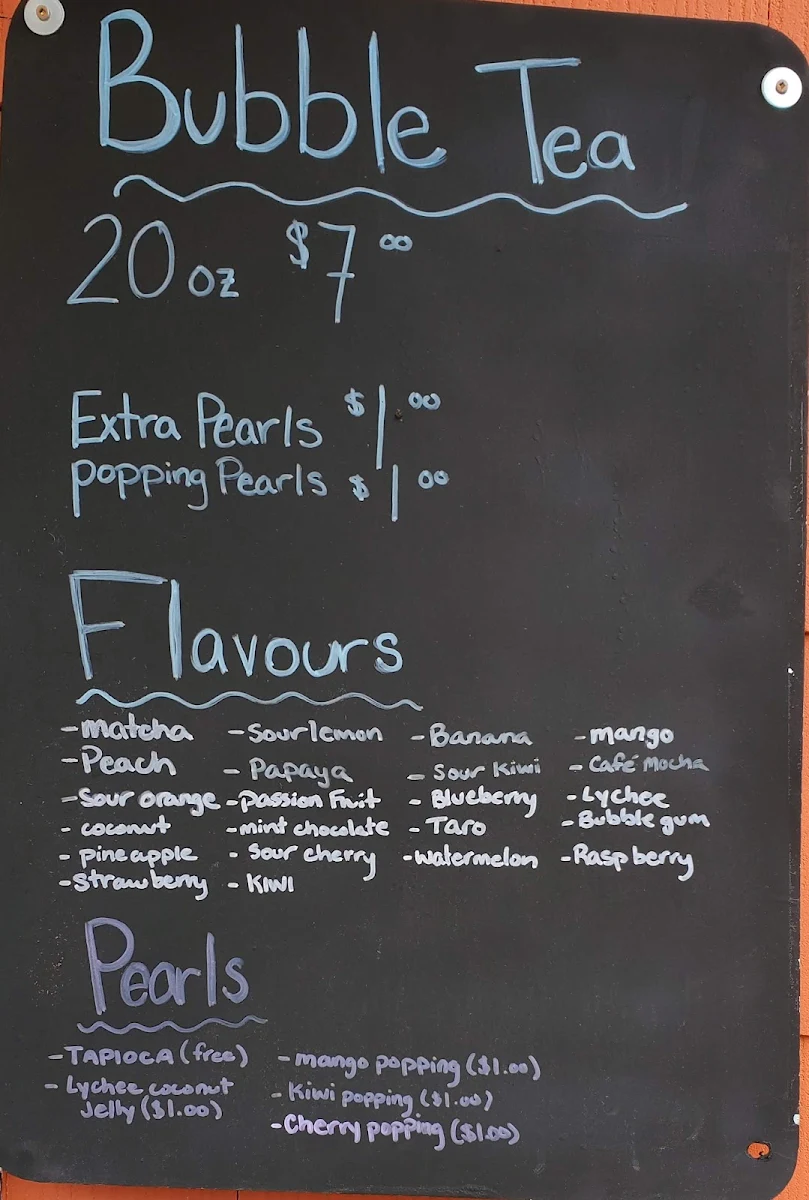 Bubble Tea
20 oz $7.00
Extra Pearls $1.00
popping Pearls $1.00
Flavours
-matcha -Sour lemon -Banana -mango
-Peach -Papaya -Sour Kiwi -Café Mocha
-Sour orange -Passion Fruit -Blueberry -Lychee
-coconut -mint chocolate -Taro -Bubble gum
-pineapple -Sour cherry -Watermelon -Raspberry
-Strawberry -KIWI
Pearls
-TAPIOCA (free) -mango popping ($1.00)
-Lychee coconut -Kiwi popping ($1.00)
Jelly ($1.00) -Cherry popping ($1.00)